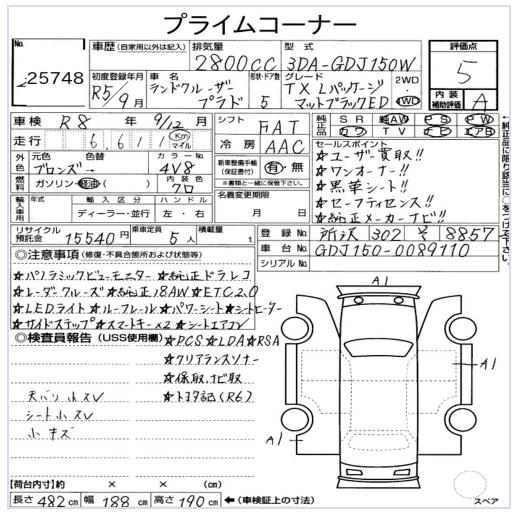 プライムコーナー
No. 25748
車歴 (自家用以外は記入) 排気量 2800cc 型式 3DA-GDJ150W 評価点 5
初度登録年月 R5/9月 車名 ランドクルーザープラド 形状・ドア数 5 グレード TXLパッケージ マットブラックED 2WD 4WD 内装補助評価 A
車検 R8 年 9/12 月 シフト FAT 純正品 SR AW PS PW
走行 6,611 Km マイル 冷房 AAC カワ TV ナビ エアB
外色 元色 ブロンズ 色替 → カラーNo. 4V8 新車整備手帳(保証書付) 有・無 ※書類と一緒に保管下さい。
燃料 ガソリン・軽油・( ) 内装色 クロ
輸入車用 年式 輸入区分 ディーラー・並行 ハンドル 左・右 名義変更期限 月 日
セールスポイント
★ユーザー買取!!
★ワンオーナー!!
★黒革シート!!
★セーフティセンス!!
★純正メーカーナビ!!
←純正品に限り該当に○をつける下さい。
リサイクル預託金 15540円 乗車定員 5人 積載量 t 登録No. 所沢 302 そ 8857
車台No. GDJ150-0089110
シリアルNo.
◎注意事項 (修復・不具合箇所および状態等)
★パノラミックビューモニター ★純正ドラレコ
★レーダークルーズ ★純正18AW ★ETC2.0
★LEDライト ★ルーフレール ★パワーシート ★シートヒーター
★サイドステップ ★スマートキー×2 ★シートエアコン
◎検査員報告 (USS使用欄) ★PCS ★LDA ★RSA
★クリアランスソナー
★保取、ナビ取
★トヨタ記(R6)
天バリ小スレ
シート小スレ
小キズ
A1
A1
A1
【荷台内寸】約 × × (cm)
長さ 482cm 幅 188cm 高さ 190cm ←(車検証上の寸法)
スペア